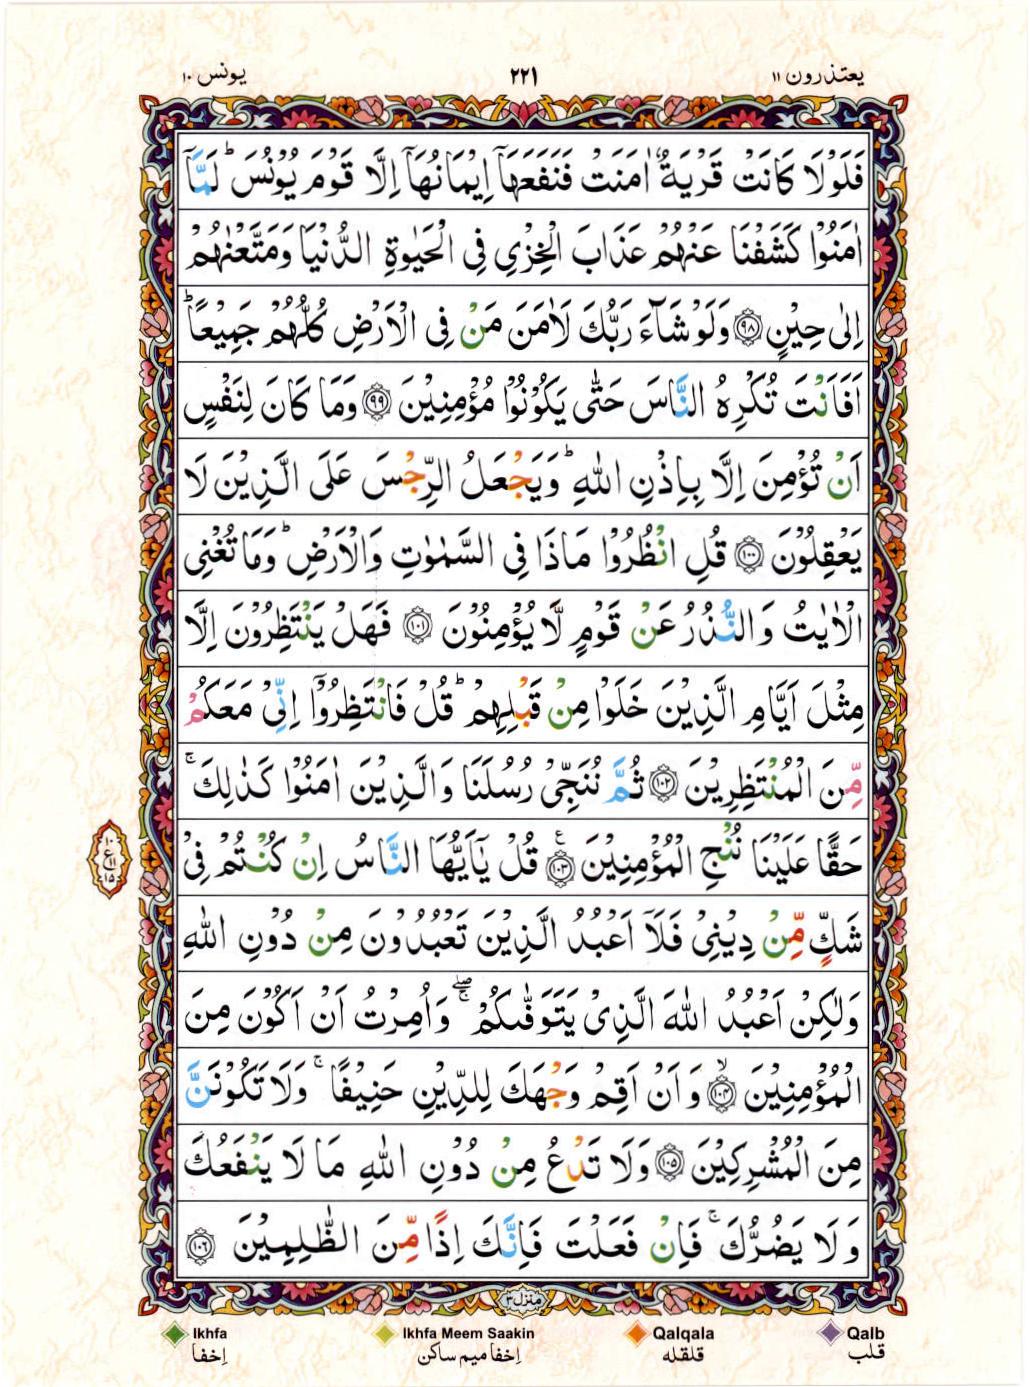 یعتذرون ۱۱
۲۲۱
یونس ۱۰
فَلَوْلَا كَانَتْ قَرْيَةٌ اٰمَنَتْ فَنَفَعَهَاۤ اِيْمَانُهَاۤ اِلَّا قَوْمَ يُوْنُسَ ؕ لَمَّاۤ
اٰمَنُوْا كَشَفْنَا عَنْهُمْ عَذَابَ الْخِزْيِ فِى الْحَيٰوةِ الدُّنْيَا وَمَتَّعْنٰهُمْ
اِلٰى حِيْنٍ ۝۹۸ وَلَوْ شَآءَ رَبُّكَ لَاٰمَنَ مَنْ فِى الْاَرْضِ كُلُّهُمْ جَمِيْعًا ؕ
اَفَاَنْتَ تُكْرِهُ النَّاسَ حَتّٰى يَكُوْنُوْا مُؤْمِنِيْنَ ۝۹۹ وَمَا كَانَ لِنَفْسٍ
اَنْ تُؤْمِنَ اِلَّا بِاِذْنِ اللّٰهِ ؕ وَيَجْعَلُ الرِّجْسَ عَلَى الَّذِيْنَ لَا
يَعْقِلُوْنَ ۝۱۰۰ قُلِ انْظُرُوْا مَاذَا فِى السَّمٰوٰتِ وَالْاَرْضِ ؕ وَمَا تُغْنِى
الْاٰيٰتُ وَالنُّذُرُ عَنْ قَوْمٍ لَّا يُؤْمِنُوْنَ ۝۱۰۱ فَهَلْ يَنْتَظِرُوْنَ اِلَّا
مِثْلَ اَيَّامِ الَّذِيْنَ خَلَوْا مِنْ قَبْلِهِمْ ؕ قُلْ فَانْتَظِرُوْۤا اِنِّىْ مَعَكُمْ
مِّنَ الْمُنْتَظِرِيْنَ ۝۱۰۲ ثُمَّ نُنَجِّىْ رُسُلَنَا وَالَّذِيْنَ اٰمَنُوْا كَذٰلِكَ ۚ
حَقًّا عَلَيْنَا نُنْجِ الْمُؤْمِنِيْنَ ۝۱۰۳ ع قُلْ يٰۤاَيُّهَا النَّاسُ اِنْ كُنْتُمْ فِىْ
۱۰
ع ۱۱
۱۵
شَكٍّ مِّنْ دِيْنِىْ فَلَاۤ اَعْبُدُ الَّذِيْنَ تَعْبُدُوْنَ مِنْ دُوْنِ اللّٰهِ
وَلٰكِنْ اَعْبُدُ اللّٰهَ الَّذِىْ يَتَوَفّٰٮكُمْ ۖۚ وَاُمِرْتُ اَنْ اَكُوْنَ مِنَ
الْمُؤْمِنِيْنَ ۙ۝۱۰۴ وَاَنْ اَقِمْ وَجْهَكَ لِلدِّيْنِ حَنِيْفًا ۚ وَلَا تَكُوْنَنَّ
مِنَ الْمُشْرِكِيْنَ ۝۱۰۵ وَلَا تَدْعُ مِنْ دُوْنِ اللّٰهِ مَا لَا يَنْفَعُكَ
وَلَا يَضُرُّكَ ۚ فَاِنْ فَعَلْتَ فَاِنَّكَ اِذًا مِّنَ الظّٰلِمِيْنَ ۝۱۰۶
منزل ۳
Ikhfa Ikhfa Meem Saakin Qalqala Qalb
اِخفا اِخفا میم ساکن قلقله قلب